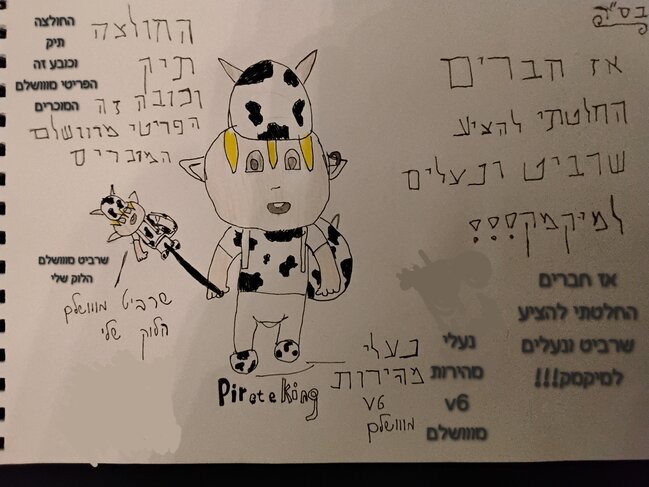 בס"ד
אז חברים
החלטתי להציע
שרביט ונעלים
למיקמק!!!
אז חברים
החלטתי להציע
שרביט ונעלים
למיקמק!!!
החולצה
תיק
וכובע זה
הפריטי מווושלם
המוכרים
החולצה
תיק
וכובע זה
הפריטי מווושלם
המוכרים
שרביט מווושלם
הלוק שלי
שרביט מווושלם
הלוק שלי
נעלי
מהירות
v6
מווושלם
נעלי
מהירות
v6
מווושלם
Pirate King